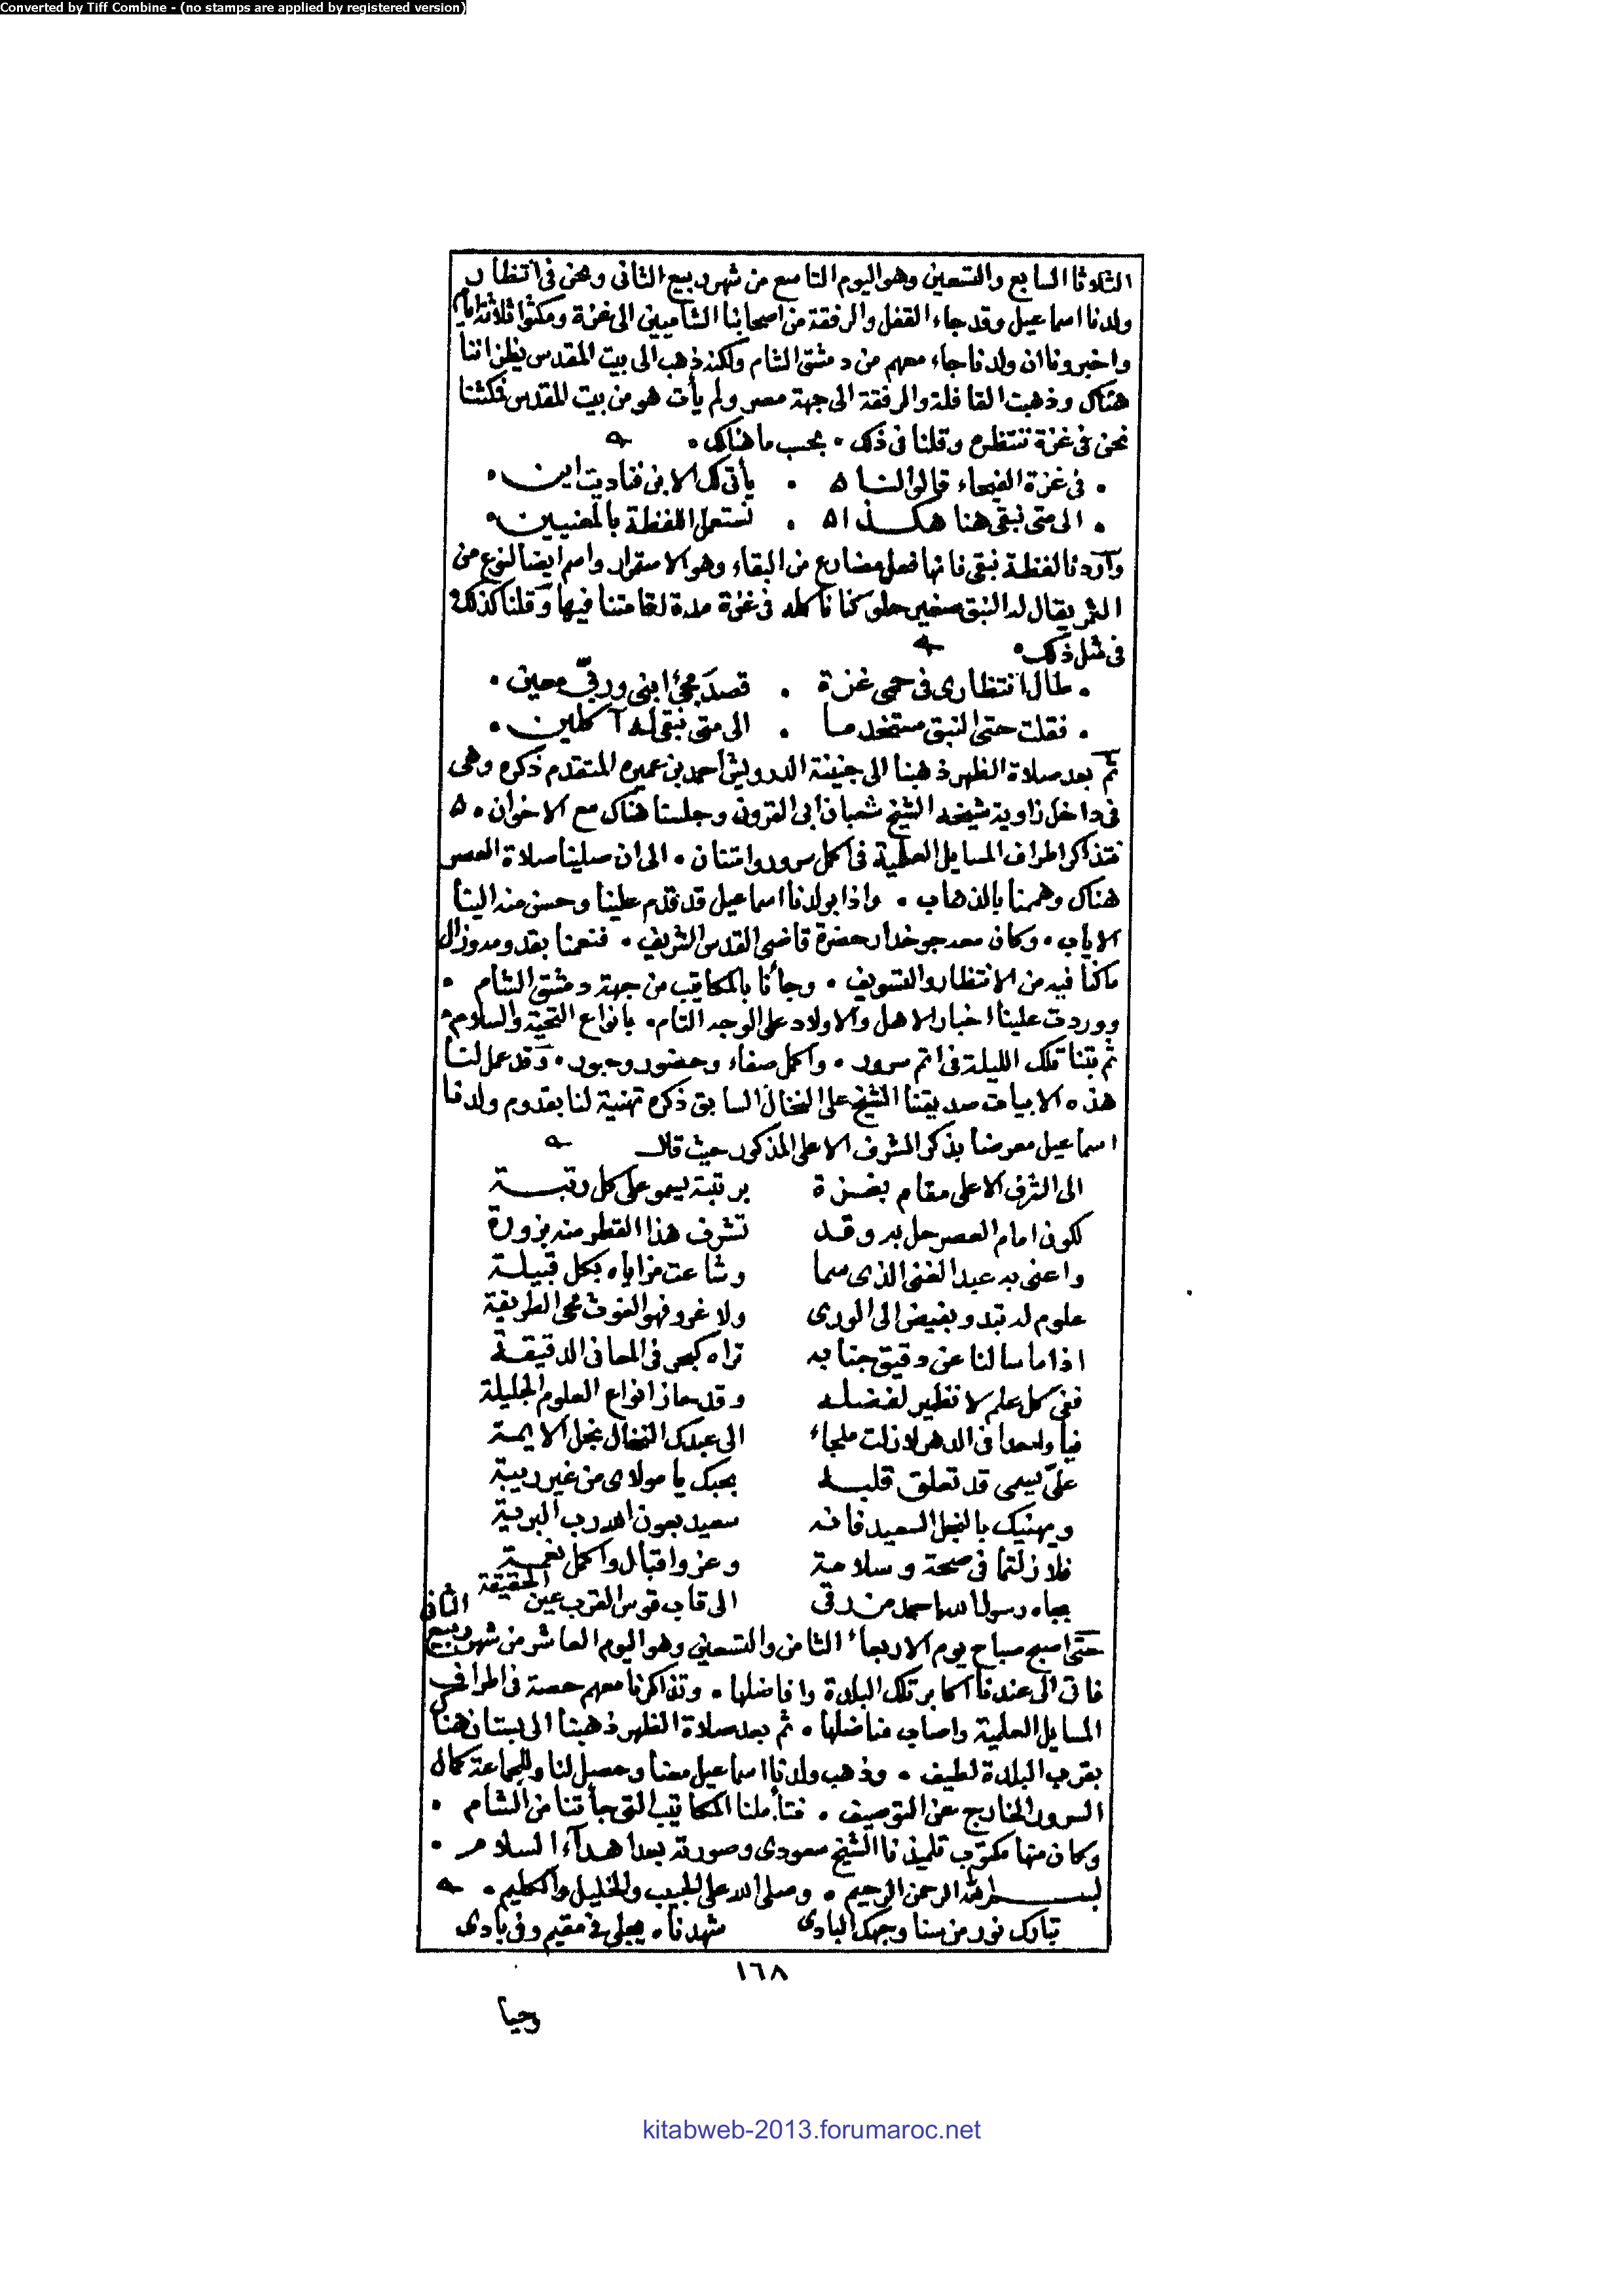 Converted by Tiff Combine - (no stamps are applied by registered version)
الثلاثا السابع والتسعين وهو اليوم التاسع من شهر ربيع الثانى ونحن فى انتظار
ولدنا اسماعيل وقد جاء القفل والرفقة من اصحابنا الشاميين الى غزة ومكثوا ثلاثة ايام
واخبرونا ان ولدنا جاء معهم من دمشق الشام ولكنه ذهب الى بيت المقدس يظن اننا
هناك وذهبت القافلة والرفقة الى جهة مصر ولم يأت هو من بيت المقدس فمكثنا
نحن فى غزة ننتظره وقلنا فى ذلك • بحسب ما هناك •
• فى غزة الفيحاء قالوا لنا • يأتى لك الابن فناديت اين •
• الى متى نبقى هنا هكذا • نستعمل اللفظة بالمعنيين •
وأردنا لفظة نبقى فانها فعل مضارع من البقاء وهو الاستمرار واسم ايضا لنوع من
الثمر يقال له النبق صغير حلو كنا نأكله فى غزة مدة اقامتنا فيها وقلنا كذلك
فى مثل ذلك •
• طال انتظارى فى حمى غزة • قصدَ مجئ ابنى وربّى معين •
• فقلت حتى النبق مستخدما • الى متى نبقى له آكلين •
ثم بعد صلاة الظهر ذهبنا الى جنينة الدرويش أحمد بن عميره المتقدم ذكره وهى
فى داخل زاوية شيخه الشيخ شعبان ابى القرون وجلسنا هناك مع الاخوان •
نتذاكر اطراف المسايل العلمية فى اكمل سرور وامتنان • الى ان صلينا صلاة العصر
هناك وهممنا بالذهاب • واذا بولدنا اسماعيل قد قدم علينا وحسن منه الينا
الاياب • وكان معه جوخدار حضرة قاضى القدس الشريف • فنعمنا بقدومه وزال
ماكنا فيه من الانتظار والتسويف • وجأنا بالمكاتيب من جهة دمشق الشام •
ووردت علينا اخبار الاهل والاولاد على الوجه التام • بانواع التحية والسلام •
ثم بتنا تلك الليلة فى اتم سرور • واكمل صفاء وحضور وحبور • وقد عمل لنا
هذه الابيات صديقنا الشيخ على النخال السابق ذكره تهنية لنا بقدوم ولدنا
اسماعيل معرضا بذكر الشرف الاعلى المذكور حيث قال
الى الشرف الاعلى مقام بغزة برتبة يسمو على كل رتبة
لكونى امام العصر حل به وقد تشرف هذا القطر منه بزورة
واعنى به عبد الغنى الذى سما وشاعت مزاياه بكل قبيلة
علوم له تبدو بفيض الى الورى ولا غرو فهو الغوث محيى الطريقة
اذا ما سالنا عن دقيق جنابه تراه كبحر فى المعانى الدقيقة
ففى كل علم لا نظير لفضله وقد حاز انواع العلوم الجليلة
فيا واحدا فى الدهر لازلت ملجاء الى عبدك النخال نجل الايمة
علىّ يسمى قد تعلق قلبه بحبك يا مولاى من غير ريبة
ويهنيك بالنجل السعيد فانه سعيد بعون الله رب البرية
فلا زلتما فى صحة وسلامة وعز واقبال واكمل نعمة
بجاه رسول الله احمد من رقى الى قاب قوس القرب عين الحقيقة
حتى اصبح صباح يوم الاربعاء الثامن والتسعين وهو اليوم العاشر من شهر ربيع الثانى
فاتى الى عندنا اكابر تلك البلدة وافاضلها • وتذاكرنا معهم حصة فى اطراف
المسايل العلمية واصاب مناضلها • ثم بعد صلاة الظهر ذهبنا الى بستان هناك
بقرب البلدة لطيف • وذهب ولدنا اسماعيل معنا وحصل لنا وللجماعة كمال
السرور الخارج عن التوصيف • فتأملنا المكاتيب التى جأتنا من الشام •
وكان منها مكتوب تلميذنا الشيخ سعودى وصورته بعد اهدآء السلام •
بسم الله الرحمن الرحيم • وصلى الله على الحبيب والخليل والكليم •
تبارك نور من سنا وجهك البادى شهدناه يجلى فى مقيم وفى بادى
١٦٨
وحيا
kitabweb-2013.forumaroc.net